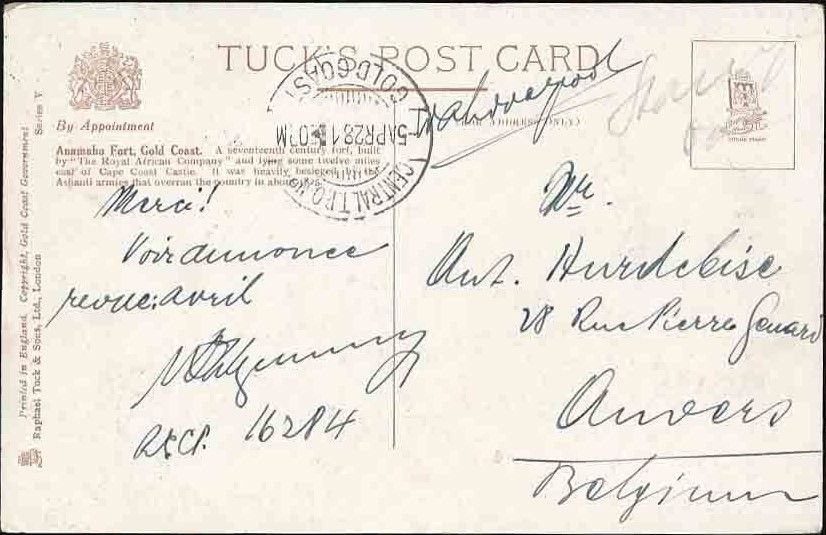 TUCK'S POST CARD
By Appointment
Anamabo Fort, Gold Coast. A seventeenth century fort, built
by "The Royal African Company" and lying some twelve miles
east of Cape Coast Castle. It was heavily besieged by the
Ashanti armies that overran the country in
Printed in England. Copyright, Gold Coast Government
Raphael Tuck & Sons, Ltd., London
Series V
GOLD COAST
5 APR 28
CENTRAL T.P.O.
ADDRESS ONLY)
Merci!
Voir annonce
revue: avril
16284
Mr.
Ant. Hurdebise
28 Rue Pierre Genard
Anvers
Belgium